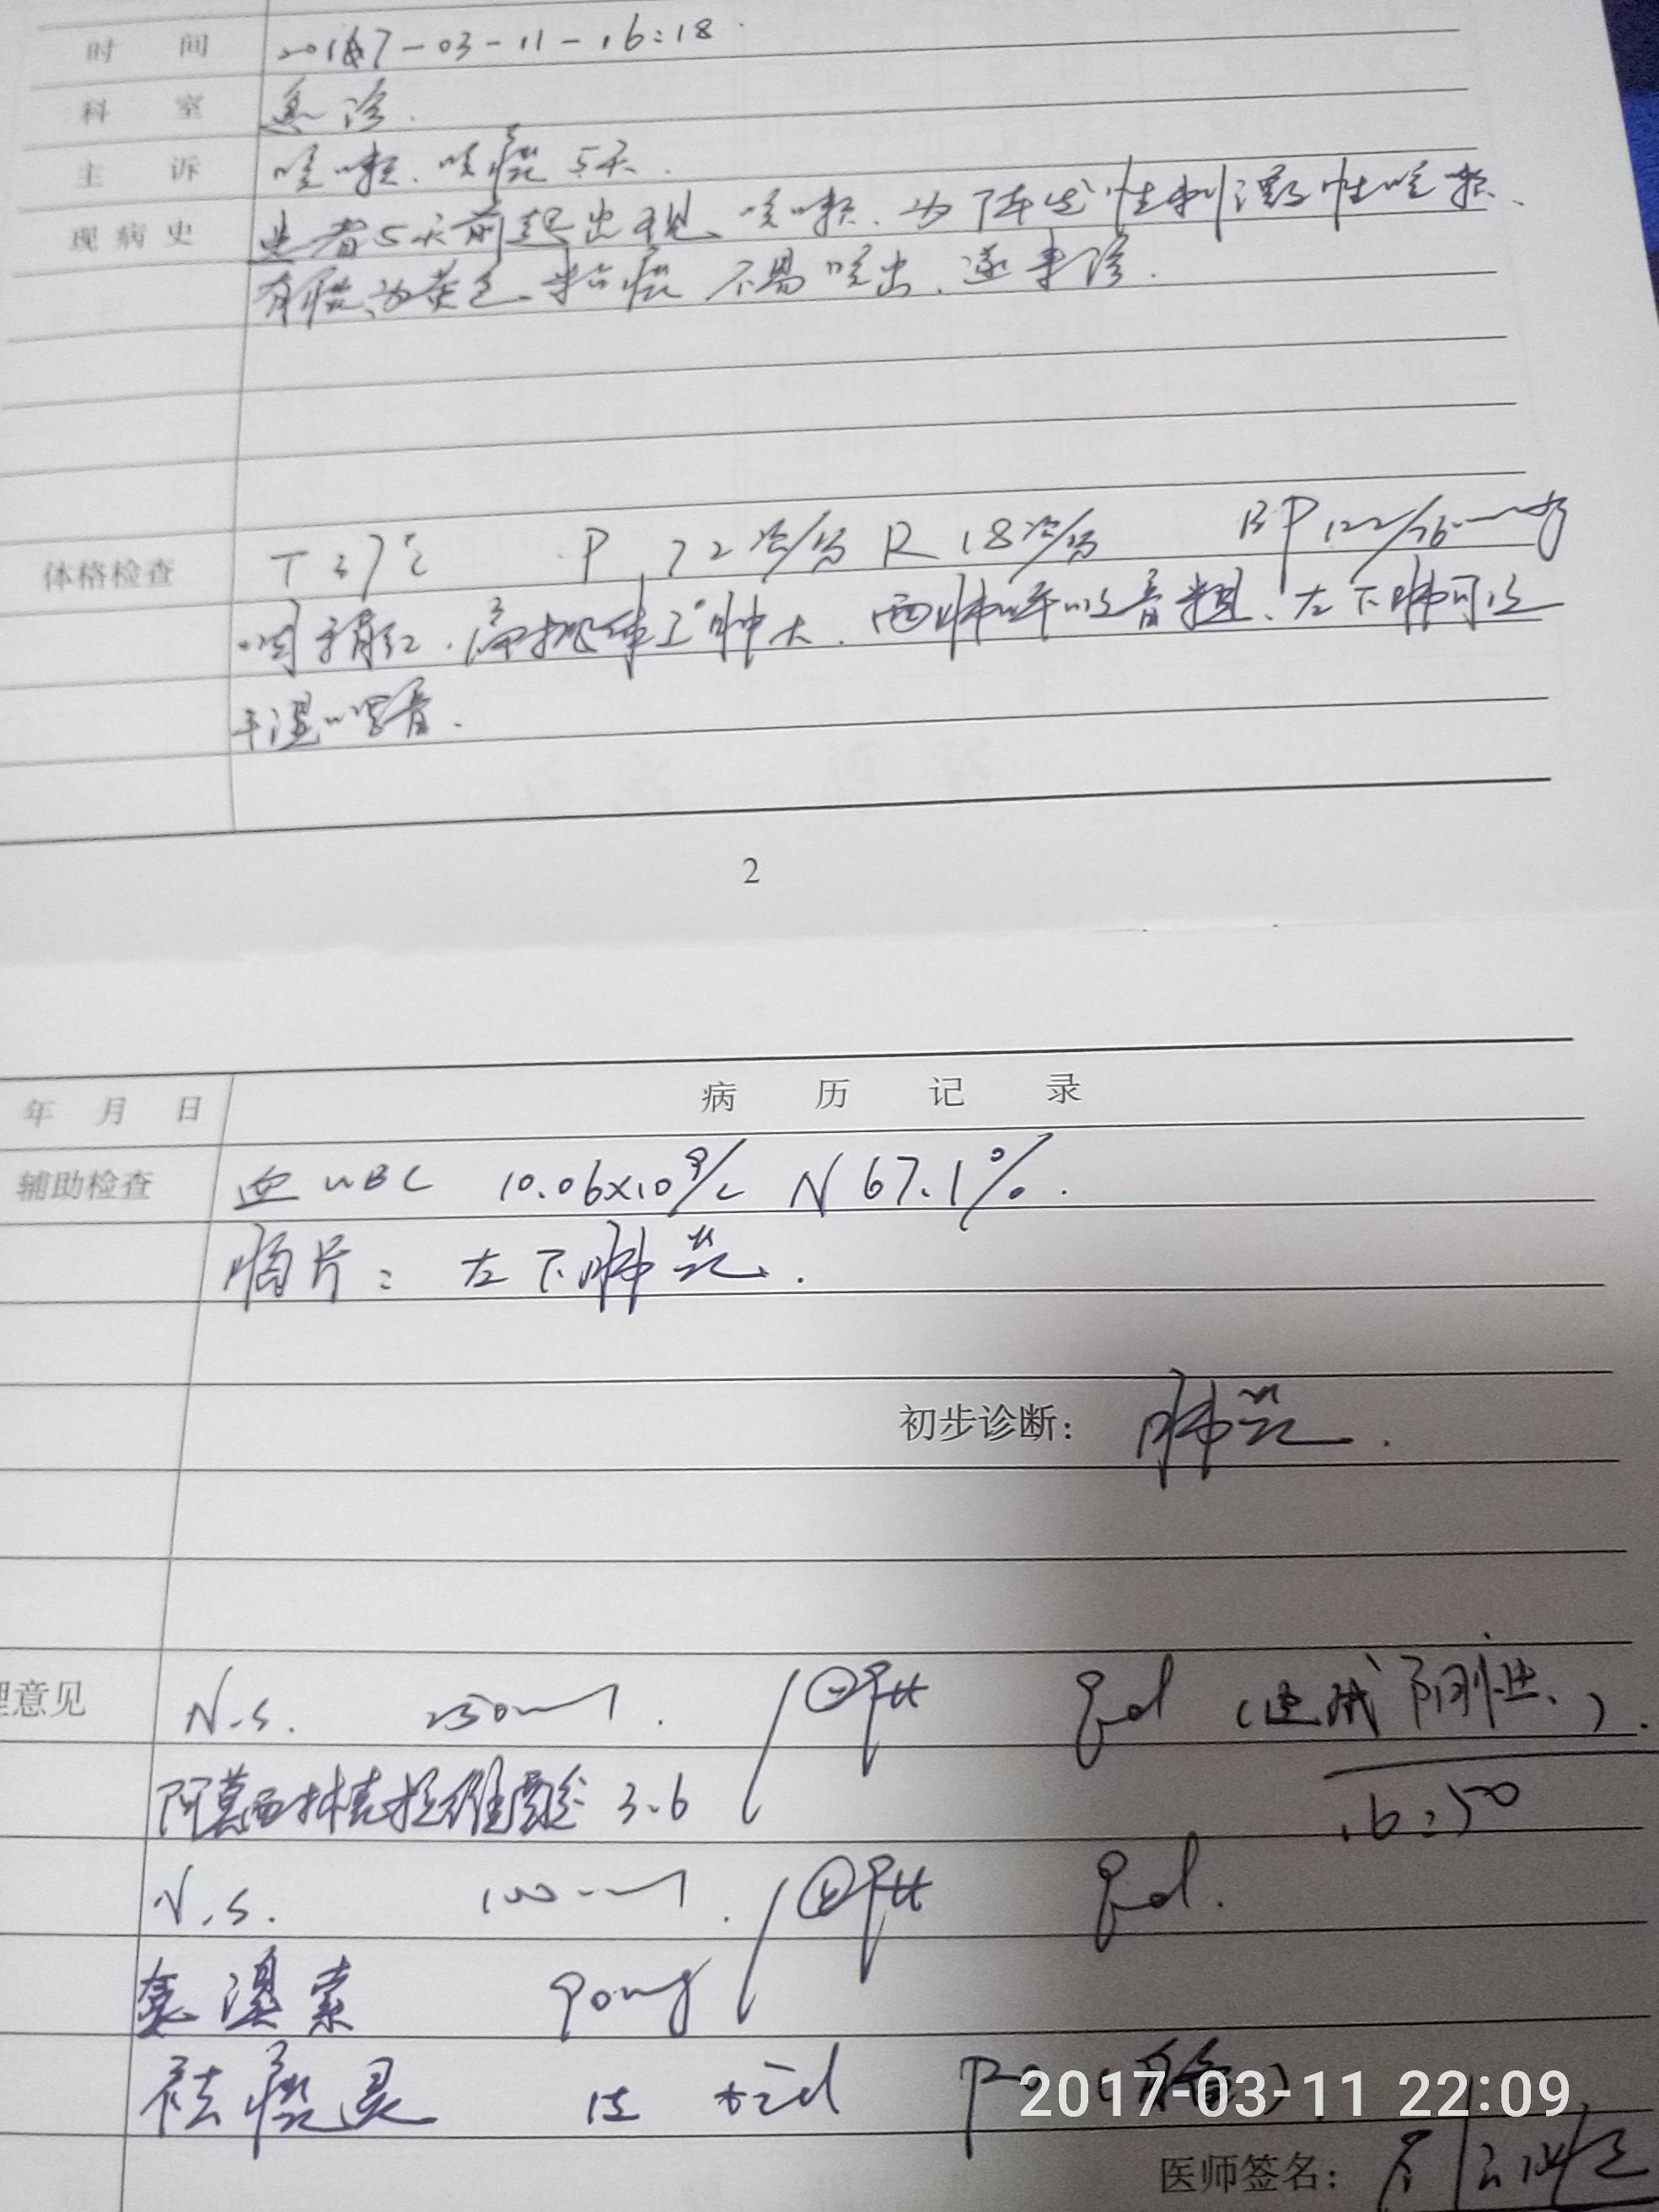 时 间 2017-03-11-16:18
科 室 急诊.
主 诉 咳嗽、咳痰5天.
现病史 患者5天前起出现咳嗽、为阵发性刺激性咳嗽、
有痰、为黄色粘痰 不易咳出、遂来诊.
体格检查 T 37℃ P 72次/分 R 18次/分 BP 122/76mmHg
咽部稍红.扁桃体Ⅰ°肿大.两肺呼吸音粗、左下肺可及
干湿啰音.
2
年 月 日 病 历 记 录
辅助检查 血WBC 10.06×10⁹/L N 67.1%.
胸片: 左下肺炎.
初步诊断: 肺炎.
理意见 N.S. 250ml. / 静滴 qd (皮试阴性)
阿莫西林克拉维酸 3.6 16:50
N.S. 100ml. / 静滴 qd.
氨溴索 90mg
祛痰灵 1支 tid Po
2017-03-11 22:09
医师签名: